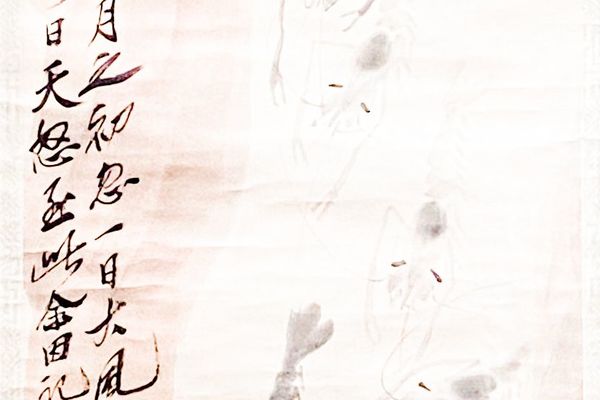 月之初忽一日大風
日天怒至此余因記